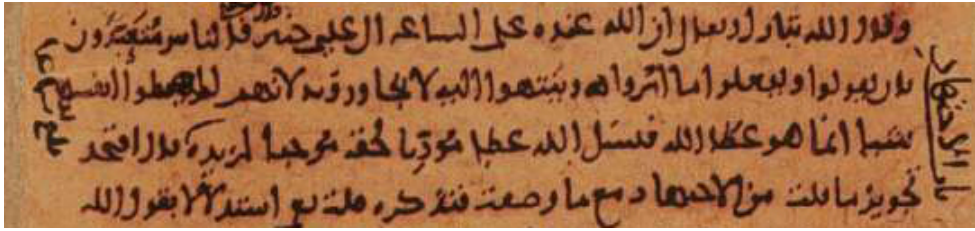 وقال الله تبارك وتعالى ان الله عنده علم الساعه الى عليم خبير فالناس متعبدون
بان يقولوا ويفعلوا ما امروا به وينتهوا اليه لا يجاوزونه لانهم لم يعطوا انفسهم
شيئا انما هو عطا الله فنسل الله عطا مؤديا لحقه موجبا لمزيده قال افتجد
تجويز ما قلت من الاجتهاد مع ما وصفت فتذكره قلت نعم استدلالا بقول الله
باب الاجتهاد